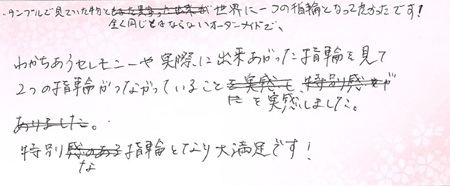 ・サンプルで見ていた物と世界に一つの指輪となって良かったです!
全く同じとはならないオーダーメイドで、
わかちあうセレモニーや実際に出来あがった指輪を見て
2つの指輪がつながっていること
に を実感しました。
特別な指輪となり大満足です!